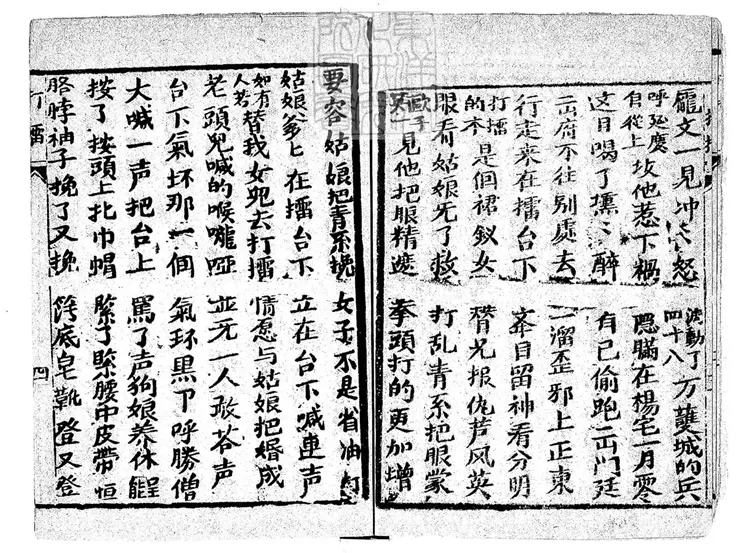 龐文一見冲冲怒 波動了四十八万護城的兵
呼延慶自從上坟他惹下禍 隱瞞在楊宅一月零
这日喝了燻々醉 有己偷跑出門廷
出府不往别處去 一溜歪邪上正東
行走来在擂台下 夆目留神看分明
打擂的本是個裙釵女 替兄报仇芦风英
眼看姑娘无了救 打乱青系把眼蒙
歐子英一見他把眼精遮 拳頭打的更加增
要容姑娘把青系挽 女子不是省油灯
姑娘爹々在擂台下 立在台下喊連声
如有人若替我女兒去打擂 情愿与姑娘把婚成
老頭兒喊的喉嚨啞 並无一人敢答声
台下氣坏那一個 氣坏黑下呼勝僧
大喊一声把台上 罵了声狗娘养休能
按了按頭上扎巾帽 緊了緊腰中皮帶恒
胳脖袖子挽了又挽 底皂靴登又登
打擂 四